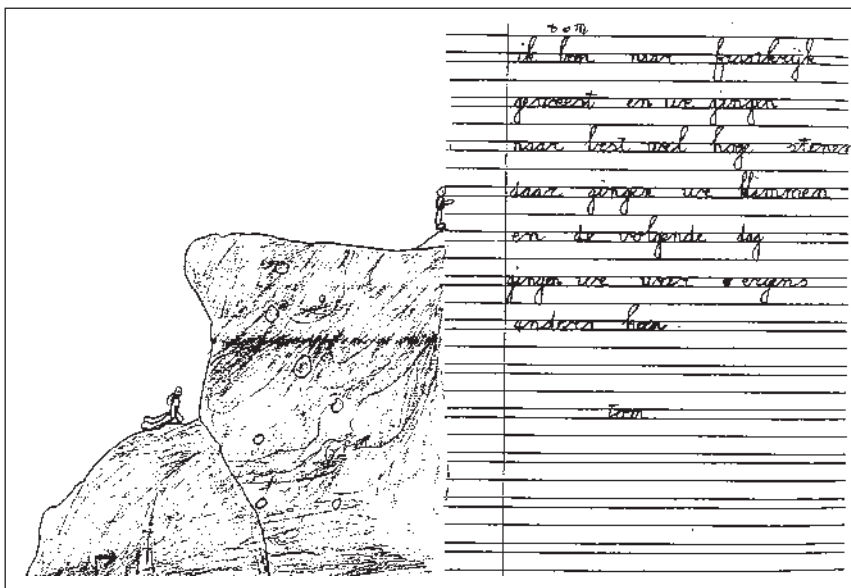 tom
ik ben naar frankrijk
geweest en we gingen
naar best wel hoge stenen
daar gingen we klimmen
en de volgende dag
gingen we weer ergens
anders heen.
tom